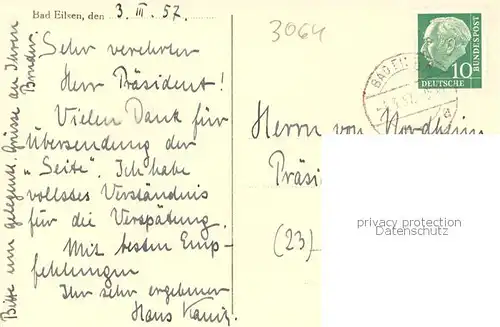 Bad Eilsen, den 3. III. 57.
Sehr verehrter
Herr Präsident!
Vielen Dank für
Übersendung der
"Seite". Ich habe
vollstes Verständnis
für die Verspätung.
Mit besten Emp-
fehlungen
Ihr sehr ergebener
Hans
Bitte um gelegentl. Grüsse an Ihren
Bruder.
3064
10
DEUTSCHE
BUNDESPOST
BAD EILSEN
a
Herrn von Nordheim
Präsi
(23)
privacy protection
Datenschutz